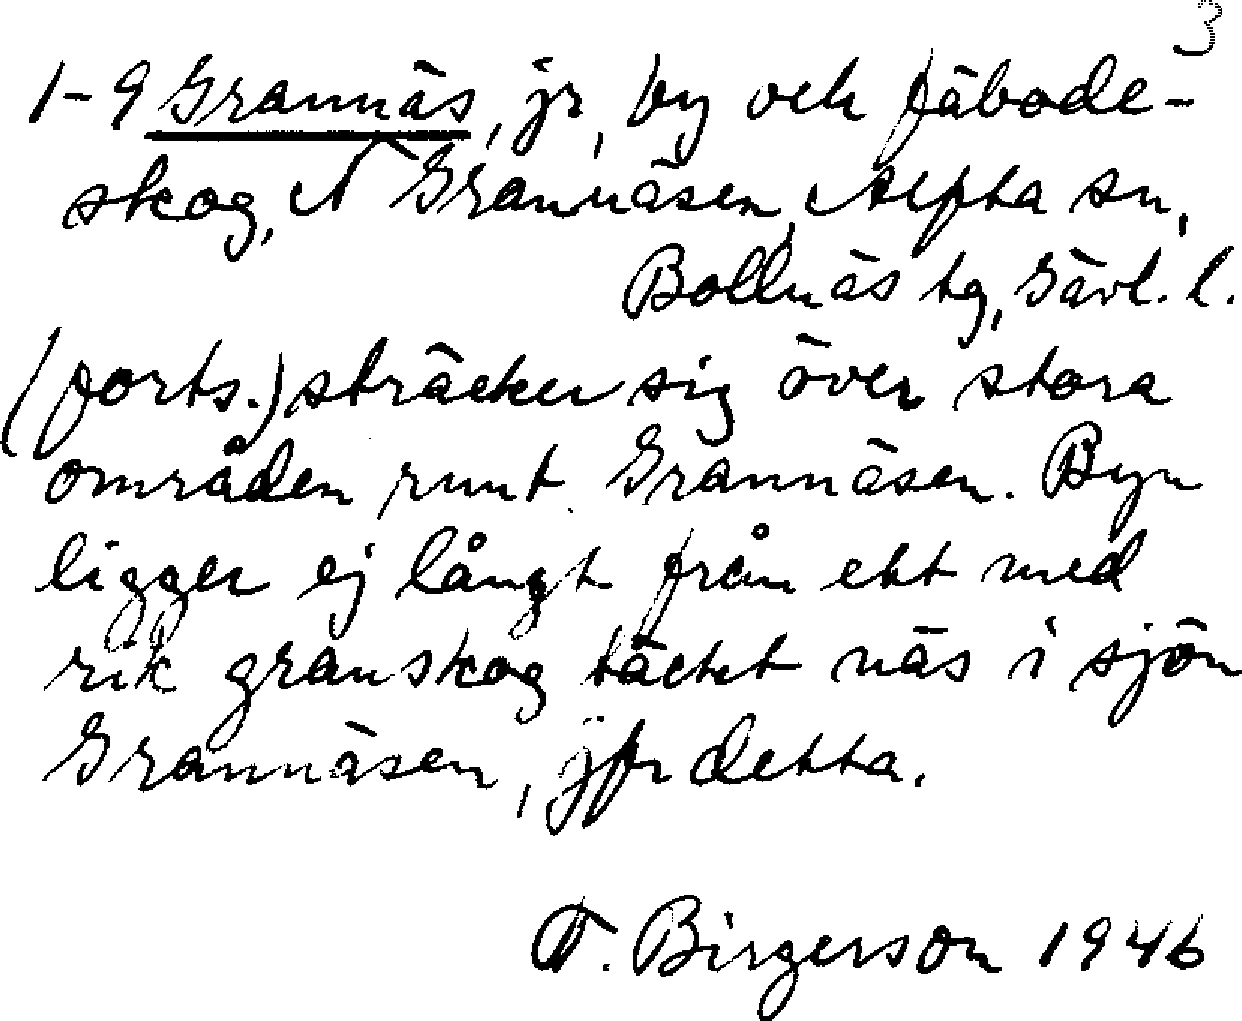 3
1-9 Grannäs, jr, by och fäbode-
skog, N Grannäsen, Alfta sn,
Bollnäs tg, Gävl. l.
(forts.) sträcker sig över stora
områden runt Grannäsen. Byn
ligger ej långt från ett med
rik granskog täckt näs i sjön
Grannäsen, jfr detta.
T. Birgerson 1946